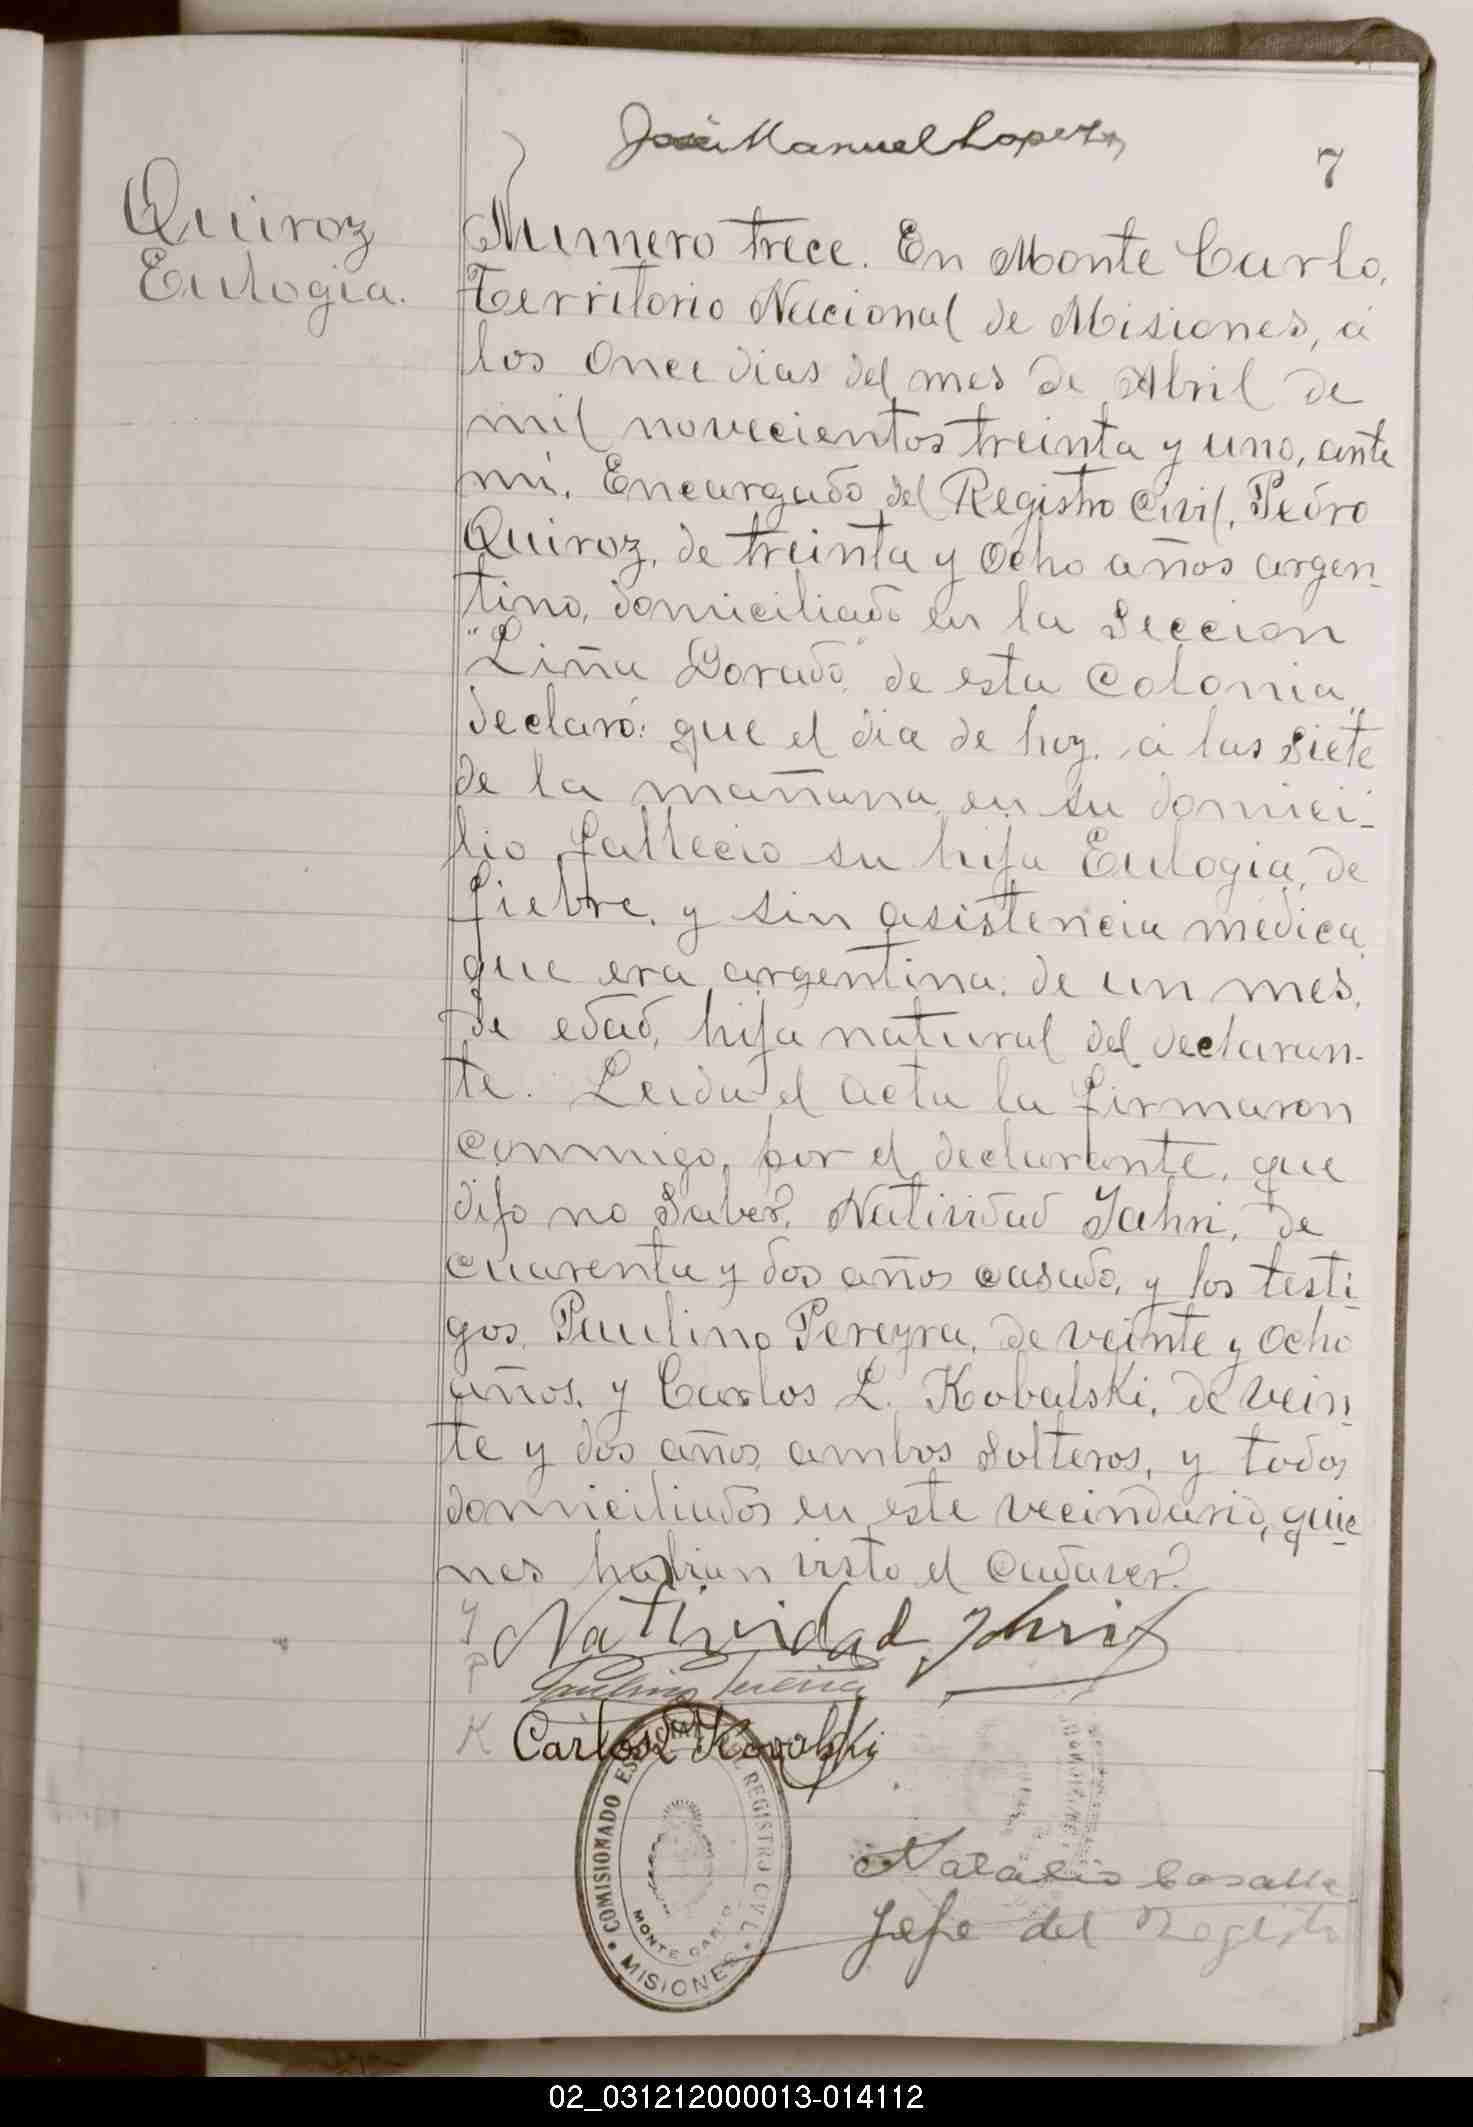 José Manuel Lopez
7
Quiroz
Eulogia.
Numero trece. En Monte Carlo,
Territorio Nacional de Misiones, á
los once dias del mes de Abril de
mil novecientos treinta y uno, ante
mi, Encargado del Registro Civil, Pedro
Quiroz, de treinta y ocho años argen-
tino, domiciliado en la Seccion
"Liña Dorado" de esta Colonia,
declaró: que el dia de hoy, á las siete
de la mañana, en su domici-
lio fallecio su hija Eulogia, de
fiebre, y sin asistencia médica,
que era argentina, de un mes,
de edad, hija natural del declaran-
te. Leida el acta la firmaron
conmigo, por el declarante, que
dijo no saber, Natividad Jahri, de
cuarenta y dos años casado, y los testi-
gos, Paulino Pereyra, de veinte y ocho
años, y Carlos L. Kobalski, de vein-
te y dos años, ambos solteros, y todos
domiciliados en este vecindario, quie-
nes habian visto el cadaver.
Y Natividad
P Paulino
K Carlos L Kovalski
COMISIONADO REGISTRO CIVIL
MONTE CARLO
MISIONES
Natalio
Jefe del Registro
02_031212000013-014112